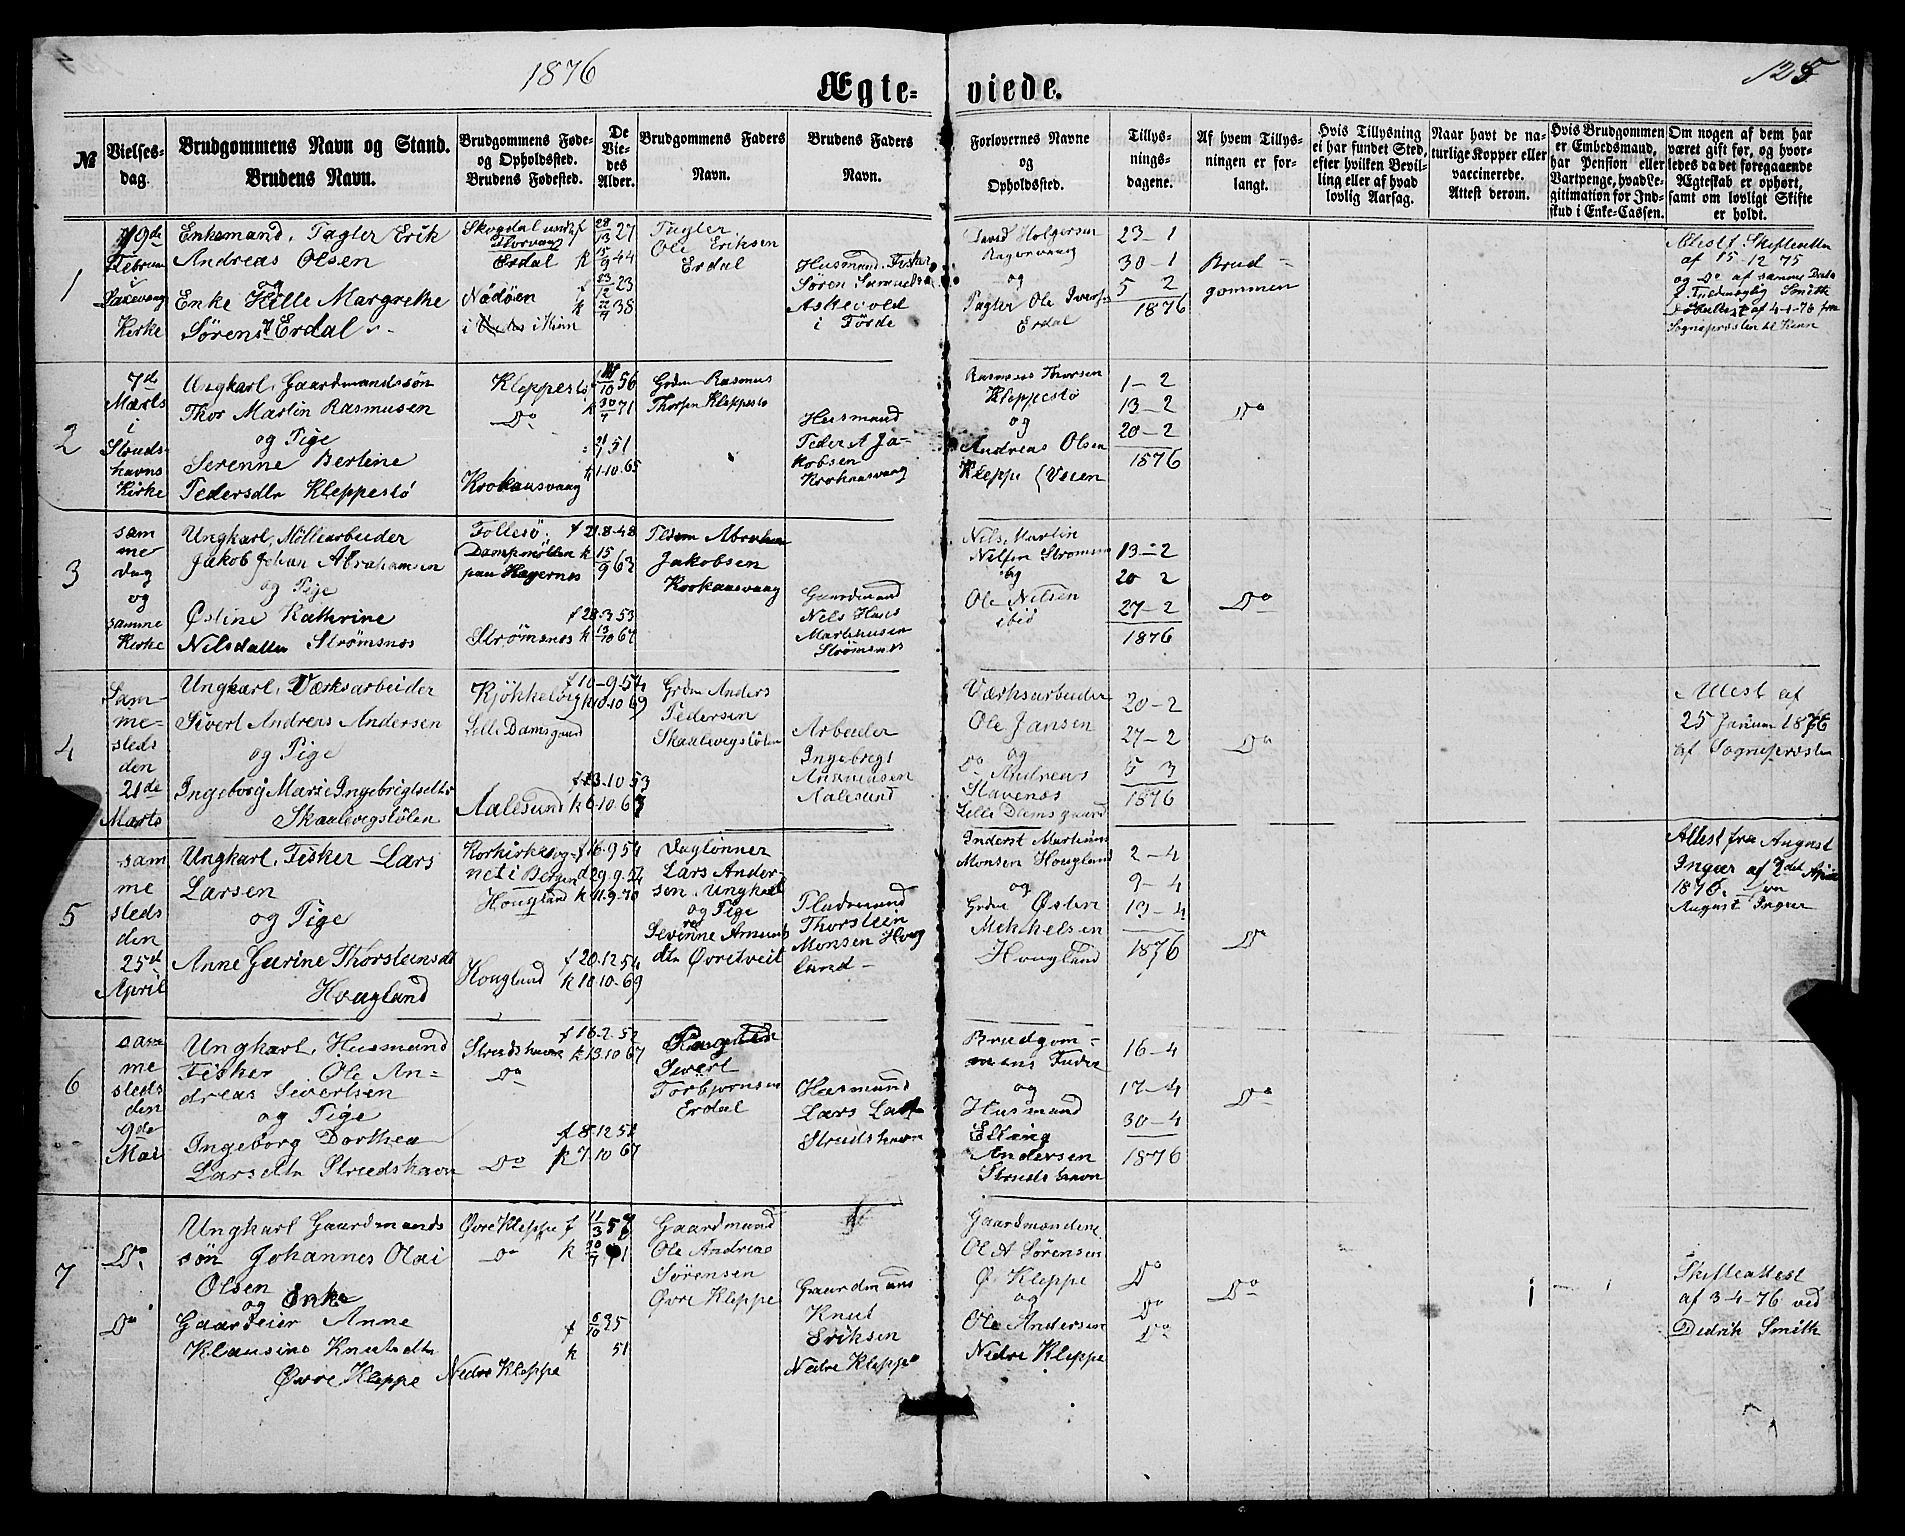 1876
125
Ægte-
viede.
№
Vielses-
dag.
Brudgommens Navn og Stand.
Brudens Navn.
Brudgommens Føde-
og Opholdssted.
Brudens Fødested.
De
Vie-
des
Alder.
Brudgommens Faders
Navn.
Brudens Faders
Navn.
Forlovernes Navne
og
Opholdssted.
Tillys-
nings-
dagene.
Af hvem Tillys-
ningen er for-
langt.
Hvis Tillysning
ei har fundet Sted,
efter hvilken Bevil-
ling eller af hvad
lovlig Aarsag.
Naar havt de na-
turlige Kopper eller
vaccinerede.
Attest derom.
Hvis Brudgommen
er Embedsmand,
har Pension eller
Vartpenge, hvad Le-
gitimation for Ind-
skud i Enke-Cassen.
Om nogen af dem har
været gift før, og hvor-
ledes da det foregaaende
Ægteskab er ophørt,
samt om lovligt Skifte
er holdt.
1
Februar
i
Kirke
Enkemand, Pagter Erik
Andreas Olsen
og
Enke Hille Margrethe
Sørens Erdal
Skogdal
Erdal
Nødøen
i Kinn
28/13 27
15/9 44
23
38
Pagter
Ole Eriksen
Erdal
Husmand, Fisker
Søren
Askevold
i Førde
David Holgersen
og
Pagter Ole
Erdal
23-1
30-1
5 2
1876
Brud-
gommen
Attest Skifteretten
af 15-12 75
af 4-1-76 fra
Sognepræsten til Kinn
2
7de
Marts
i
Struds-
havns
Kirke
Ungkarl, Gaardmandssøn
Thor Martin Rasmusen
og Pige
Serenne Bertine
Pedersdtr Kleppestø
Kleppestø
Do
Krokaasvaag
56
k 30/7 71
51
k 1-10-65
Grdm Rasmus
Thorsen Kleppestø
Husmand
Peder A Ja-
kobsen
Krokaasvaag
Rasmus Thorsen
Kleppestø
og
Andreas Olsen
Kleppe (Veien
1-2
13-2
20-2
1876
Do
3
sam
me
dag
og
samme
Kirke
Ungkarl, Møllearbeider
Jakob Johan Abrahamsen
og Pige
Østine Kathrine
Nilsdatter Strømsnes
Follesø,
Dampmøllen
paa Hagernes
Strømsnes
f 21.8-48
k 15/9 63
f 28.3-53
k 13/10 67
Abraham
Jakobsen
Krokaasvaag
Gaardmand
Nils Hans
Markhusen
Strømsnes
Nils Martin
Nilsen Strømsn
og
Ole Nilsen
ibid
13-2
20 2
27-2
1876
Do
4
Sam-
me-
sleds
den
21de
Marts
Ungkarl, Værksarbeider
Sivert Andreas Andersen
og Pige
Ingeborg Marie Ingebrigtsdtr
Skaalevigstølen
Kjøkkelvig
Lille Damsgaard
Aalesund
f 10-9-54
k 10-10 69
f 13-10 53
k 6-10-67
Grdm Anders
Pedersen
Skaalevigstølen
Arbeider
Ingebrigt
Aalesund
Værksarbeider
Ole Jansen
og
Do Andreas
Stavenes
Lille Damsgaard
20-2
27-2
5 3
1876
Do
Attest af
25 Januar 1876
af Sognepræsten
5
sam
me
sleds
den
25d
April
Ungkarl, Fisker Lars
Larsen
og Pige
Anne Gurine Thorsteinsdtr
Hougland
Korskirkesog-
net i Bergen
Hougland
Hougland
f 16.9 54
d 29.9-54
k 11.9-70
f 20.12 54
k 10-10-69
Daglønner
Lars Ander-
sen, Ungkarl
og Pige
Sevrinne Amunds
dtr Øvretveit
Pladsmand
Thorstein
Monsen Houg
land-
Inderst Markus
Monsen Hougland
og
Grdm Østen
Mikkelsen
Hougland
2-4
9-4
13-4
1876
Do
Attest fra August
Ingær af 7det April
1876.
August Ingær
6
sam
me
sleds
den
9de
Mai
Ungkarl, Husmand
Fisker, Ole An-
dreas Sivertsen
og Pige
Ingeborg Dorthea
Larsdtr Strudshavn
Strudshavn
Do
Do
f 16-2-52
k 13-10 67
f 8-12 52
k 7-10 67
Sivert
Torbjørnsen
Erdal
Husmand
Lars
Strudshavn
Brudgom-
mens Fader
og
Husmand
Elling
Andersen
Strudshavn
16-4
17-4
30-4
1876
Do
7
Do
Do
Ungkarl Gaardmands
søn Johannes Olai
Olsen
og Enke
Gaardeier Anne
Klausine Knutsdtr
Øvre Kleppe
Øvre Kleppe
Do
Nedre Kleppe
f 11/3 57
k 30/7 71
f 6/10 35
k 51
Gaardmand
Ole Andreas
Sørensen
Øvre Kleppe
Gaardmans
Knut
Eriksen
Nedre Kleppe
Gaardmændene
Ol A Sørensen
Ø Kleppe
og
Ole Andersen
Nedre Kleppe
Do
Do
Do
Do
Skifteattest
af 3-4-76 ved
Didrik Smith